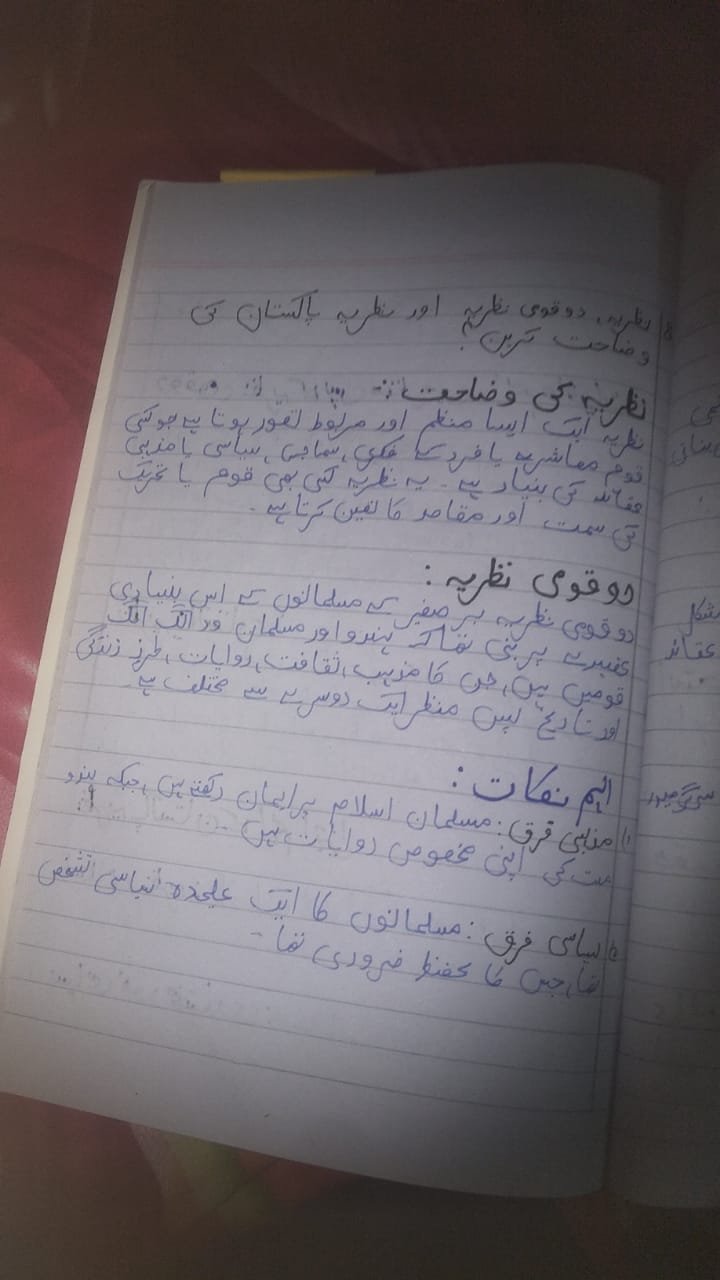 نظریہ، دو قومی نظریہ اور نظریہ پاکستان کی
وضاحت کریں؟
نظریہ کی وضاحت:-
نظریہ ایک ایسا منظم اور مربوط تصور ہوتا ہے جو کسی
قوم معاشرے یا فرد کے فکری، سماجی، سیاسی یا مذہبی
عقائد کی بنیاد ہے۔ یہ نظریہ کسی بھی قوم یا تحریک
کی سمت اور مقاصد کا تعین کرتا ہے۔
دو قومی نظریہ:
دو قومی نظریہ برصغیر کے مسلمانوں کے اس بنیادی
عقیدے پر مبنی تھا کہ ہندو اور مسلمان دو الگ الگ
قومیں ہیں، جن کا مذہب، ثقافت، روایات، طرز زندگی
اور تاریخ پس منظر ایک دوسرے سے مختلف ہے
اہم نکات:
۱) مذہبی فرق: مسلمان اسلام پر ایمان رکھتے ہیں، جبکہ ہندو
مت کی اپنی مخصوص روایات ہیں۔
سیاسی فرق: مسلمانوں کا ایک علیحدہ سیاسی تشخص
تھا، جس کا تحفظ ضروری تھا۔
کی
مشکل
عقائد